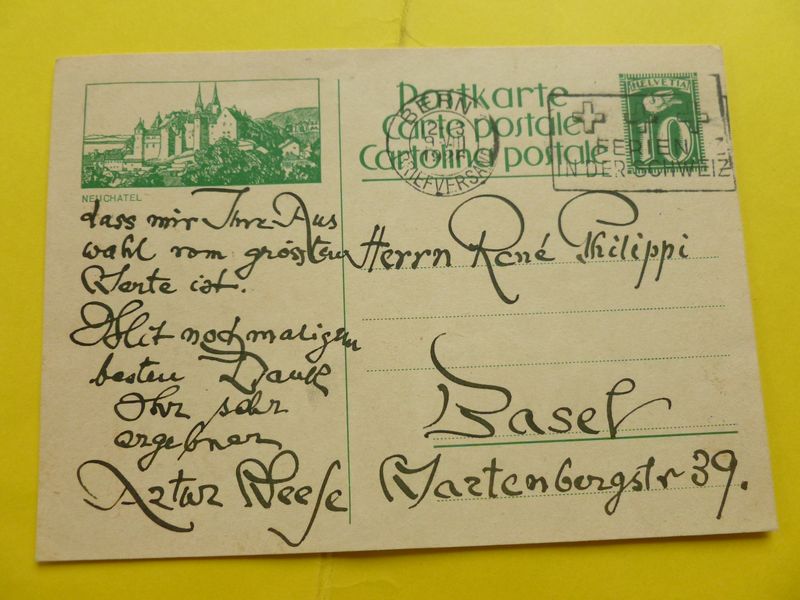 NEUCHATEL
dass mir Ihre Aus
wahl vom grössten
Werte ist.
Mit nochmaligem
besten Dank
Ihr sehr
ergebner
Artur Weese
Postkarte
Carte postale
Cartolina postale
HELVETIA
10
BERN
BRIEFVERSAND
FERIEN
IN DER SCHWEIZ
Herrn René Philippi
Basel
Wartenbergstr 39.